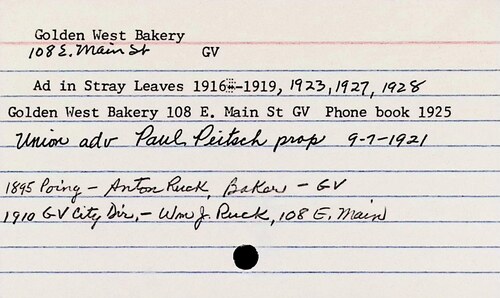 Golden West Bakery
108 E. Main St GV
Ad in Stray Leaves 1916-1919, 1923, 1927, 1928
Golden West Bakery 108 E. Main St GV Phone book 1925
Union adv Paul Peitsch prop 9-7-1921
1895 Poing - Anton Ruck, Baker - GV
1910 GV City Dir. - Wm J. Ruck, 108 E. Main